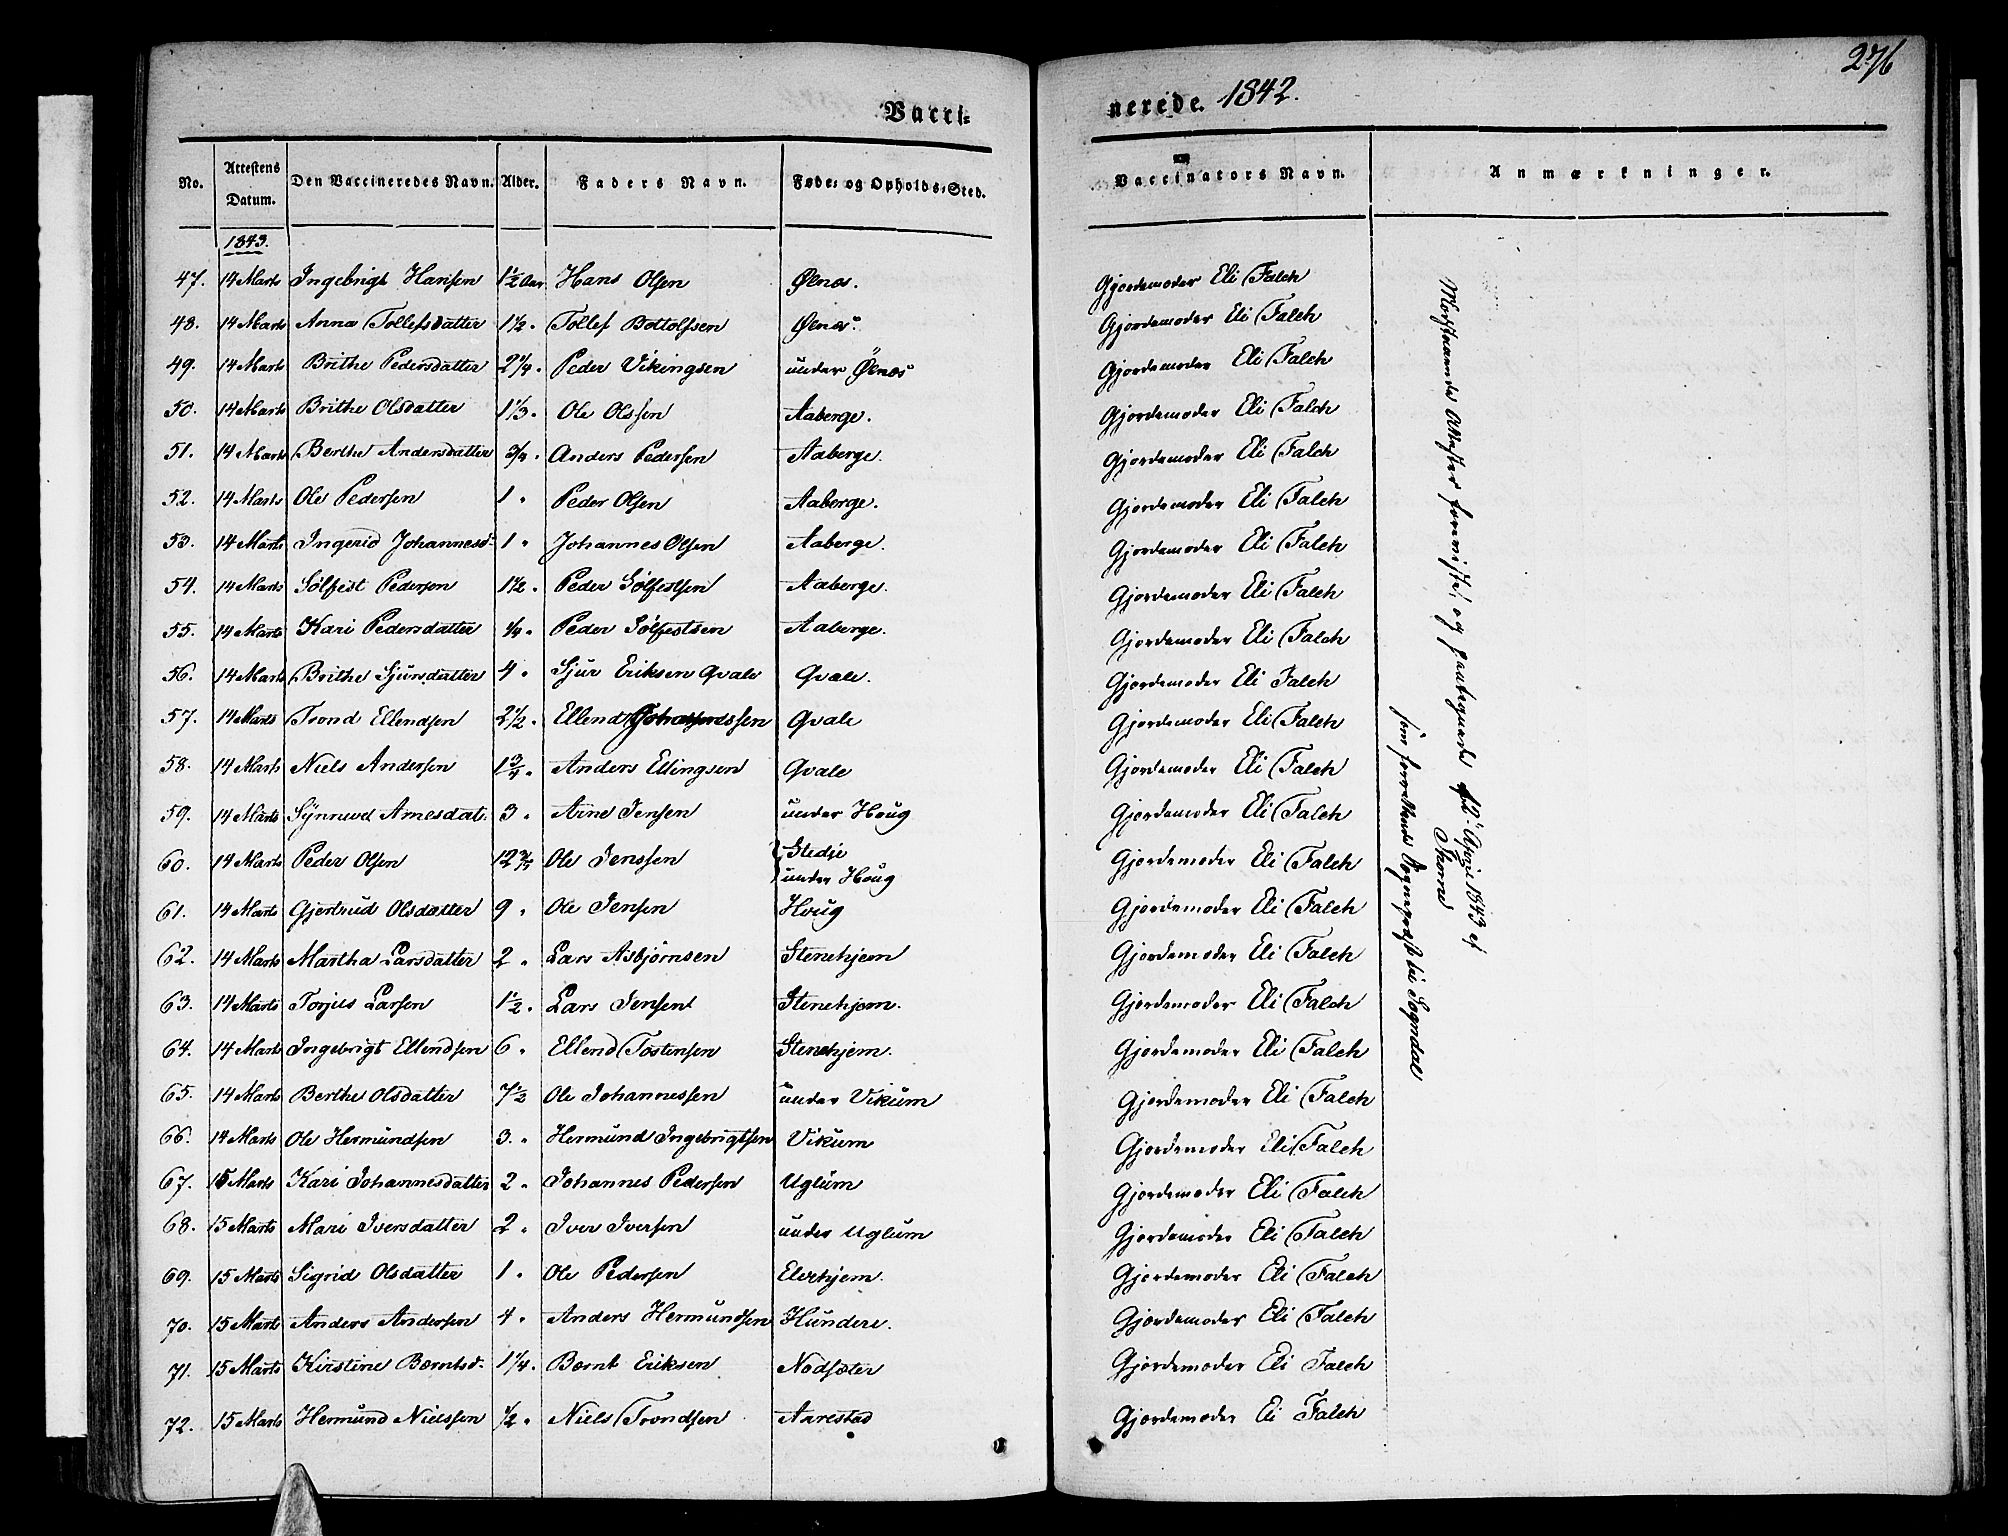 276
Vacci- nerede. 1842.
No. Attestens Datum. Den Vaccineredes Navn. Alder. Faders Navn. Føde- og Opholds-Sted. Vaccinators Navn. Anmærkninger.
1843.
47. 14 Marts Ingebrigt Hansen 1½ Aar Hans Olsen Ølnæs. Gjordemoder Eli Falch
48. 14 Marts Anna Tollefsdatter 1½. Tollef Bottolfsen Ølnæs. Gjordemoder Eli Falch
49. 14 Marts Brithe Pedersdatter 2¼. Peder Vikingsen under Ølnæs Gjordemoder Eli Falch
50. 14 Marts Brithe Olsdatter 1⅓. Ole Olssen Aaberge. Gjordemoder Eli Falch
51. 14 Marts Berthe Andersdatter ¾. Anders Pedersen Aaberge. Gjordemoder Eli Falch
52. 14 Marts Ole Pedersen 1 " Peder Olsen Aaberge. Gjordemoder Eli Falch
53. 14 Marts Ingerid Johannesd. 1 " Johannes Olsen Aaberge. Gjordemoder Eli Falch
54. 14 Marts Sølfest Pedersen 1½. Peder Sølfestsen Aaberge. Gjordemoder Eli Falch
55. 14 Marts Kari Pedersdatter ¼. Peder Sølfestsen Aaberge. Gjordemoder Eli Falch
56. 14 Marts Brithe Sjursdatter 4 " Sjur Eriksen Qvale Qvale. Gjordemoder Eli Falch
57. 14 Marts Trond Ellendsen 2½. Ellend Johannessen Qvale Gjordemoder Eli Falch
58. 14 Marts Niels Andersen 1¾. Anders Ellingsen Qvale Gjordemoder Eli Falch
59. 14 Marts Synneved Arnesdat. 3 " Arne Jensen under Houg Gjordemoder Eli Falch
60. 14 Marts Peder Olsen 12¾ Ole Jenssen Stedje under Houg Gjordemoder Eli Falch
61. 14 Marts Gjertrud Olsdatter 9 " Ole Jensen Houg Gjordemoder Eli Falch
62. 14 Marts Martha Larsdatter 2 " Lars Asbjørnsen Stenehjem Gjordemoder Eli Falch
63. 14 Marts Torjus Larsen 1½ " Lars Jensen Stenehjem. Gjordemoder Eli Falch
64. 14 Marts Ingebrigt Ellendsen 6 " Ellend Tostensen Stenehjem. Gjordemoder Eli Falch
65. 14 Marts Berthe Olsdatter 7½ Ole Johannessen under Vikum Gjordemoder Eli Falch
66. 14 Marts Ole Hermundsen 3. " Hermund Ingebrigtsen Vikum Gjordemoder Eli Falch
67. 15 Marts Kari Johannesdatter 2 " Johannes Pedersen Uglum Gjordemoder Eli Falch
68. 15 Marts Mari Iversdatter 2 " Iver Iversen under Uglum Gjordemoder Eli Falch
69. 15 Marts Sigrid Olsdatter 1 " Ole Pedersen Elvehjem. Gjordemoder Eli Falch
70. 15 Marts Anders Andersen 4 " Anders Hermundsen Hundere. Gjordemoder Eli Falch
71. 15 Marts Kirstine Berntsd. 1¼. Bernt Eriksen Nodsæter Gjordemoder Eli Falch
72. 15 Marts Hermund Nielssen ½ " Niels Trondsen Aarestad Gjordemoder Eli Falch
Modstaaende Attester foreviste og 12te April 1843 af
som forrettende Sognepræst til Sogndal